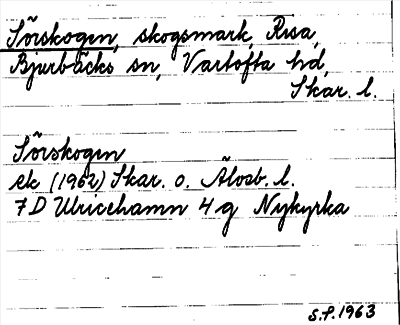 Sörskogen, skogsmark, Risa,
Bjurbäcks sn, Vartofta hd,
Skar. l.
Sörskogen
ek (1962) Skar. o. Älvsb. l.
7D Ulricehamn 4g Nykyrka
S.P. 1963